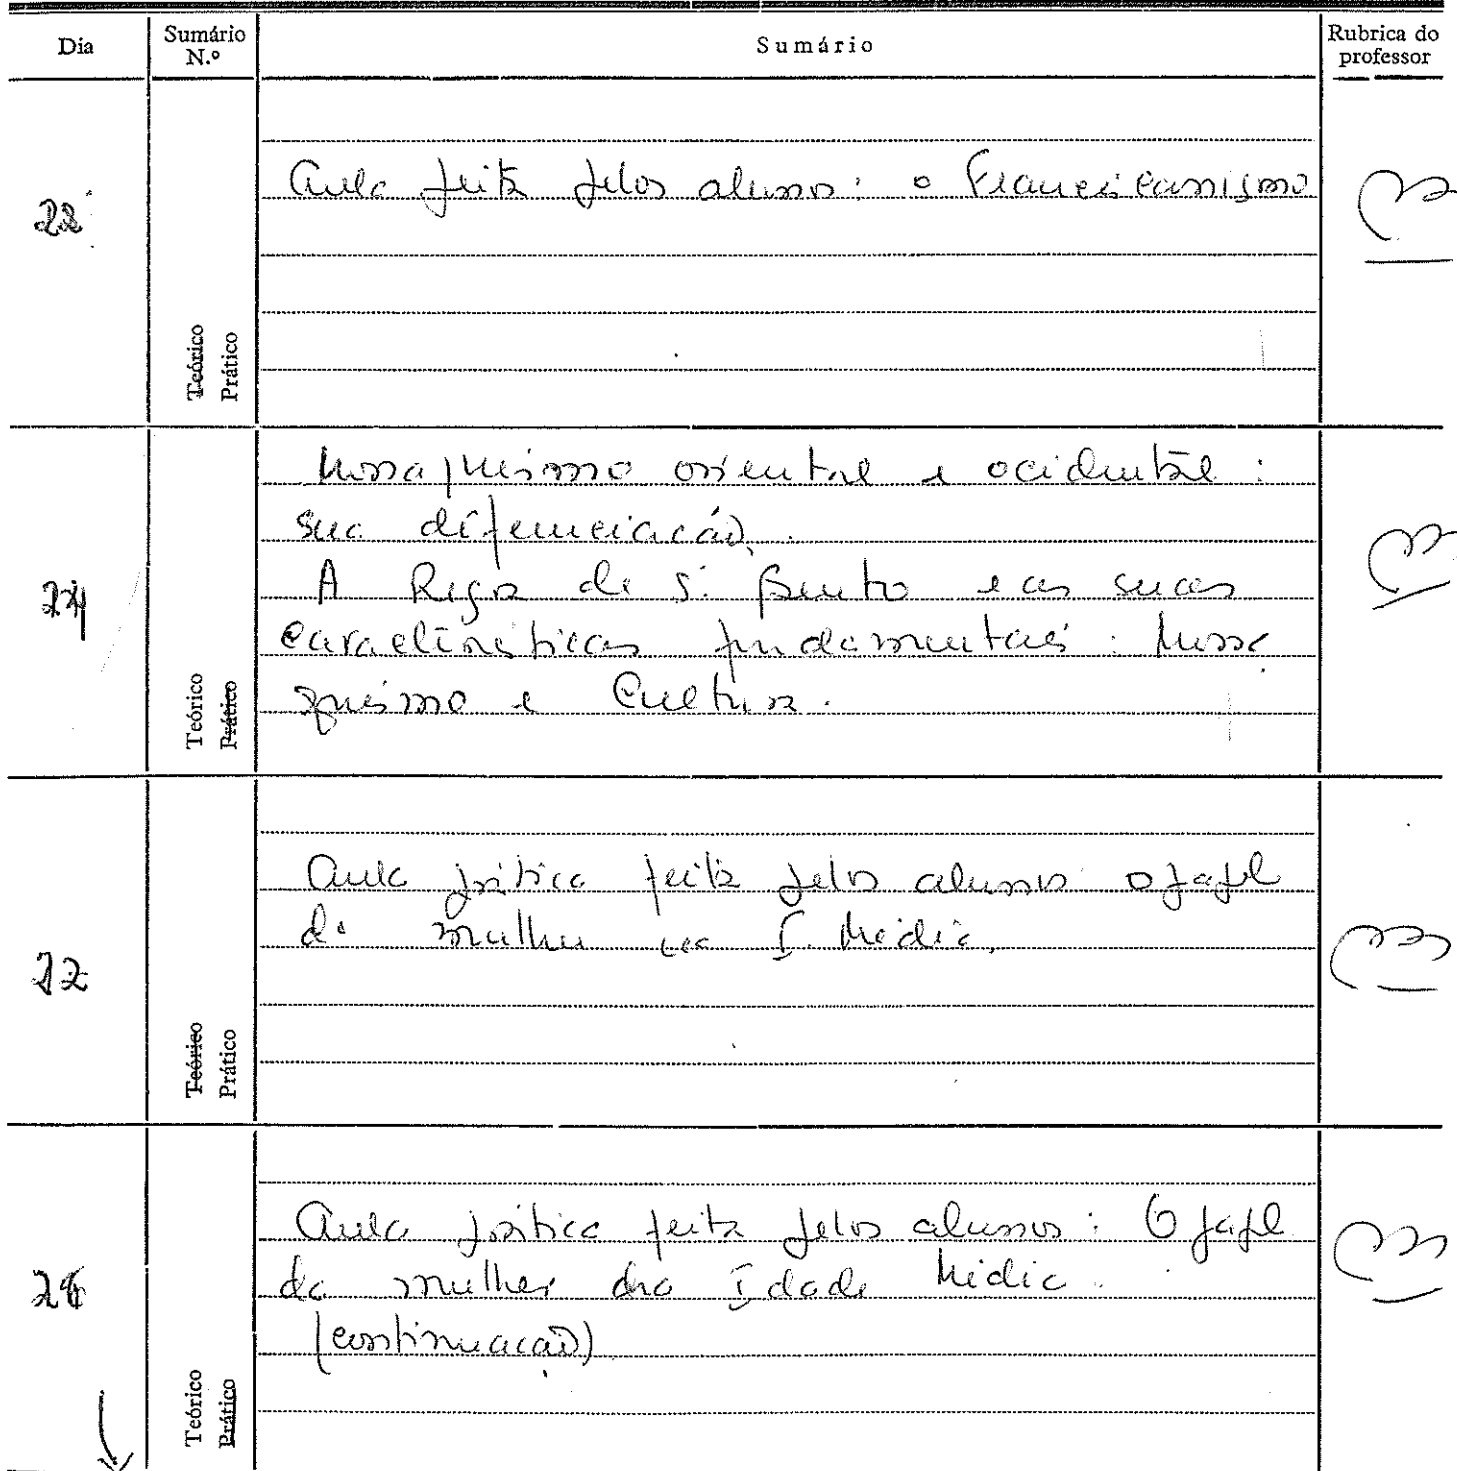 Dia
Sumário N.º
Sumário
Rubrica do professor
22
Teórico
Prático
Aula feita pelos alunos: o Franciscanismo
24
Teórico
Prático
Monaquismo oriental e ocidental:
sua diferenciação.
A Regra de S. Bento e as suas
características fundamentais: Mona
quismo e Cultura.
22
Teórico
Prático
Aula prática feita pelos alunos o papel
da mulher na I. Média.
Teórico
Prático
Aula prática feita pelos alunos: O papel
da mulher na Idade Média.
(continuação)